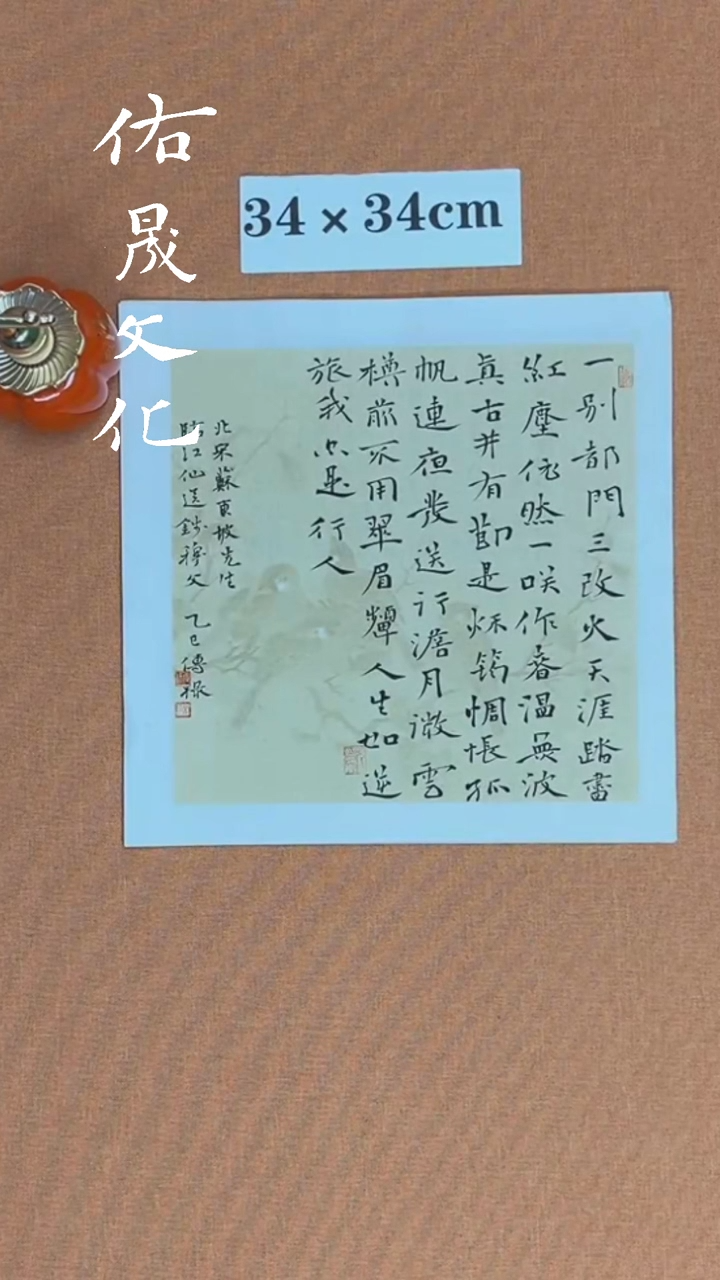 佑晟文化
34×34cm
一别都門三改火天涯踏盡
紅塵依然一咲作春温無波
真古井有節是秌筠惆悵孤
帆連夜發送行澹月微雲
樽前不用翠眉顰人生如逆
旅我亦是行人
北宋蘇東坡先生
臨江仙送錢穆父 乙巳傳